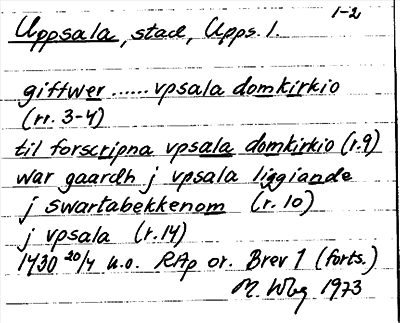 1-2
Uppsala, stad, Upps. l.
giftwer ...... vpsala domkirkio
(rr. 3-4)
til forscripna vpsala domkirkio (r.9)
war gaardh j vpsala liggiande
j swartabekkenom (r. 10)
j vpsala (r.14)
1430 20/4 u.o. RAp or. Brev 1 (forts.)
M. Wbg 1973